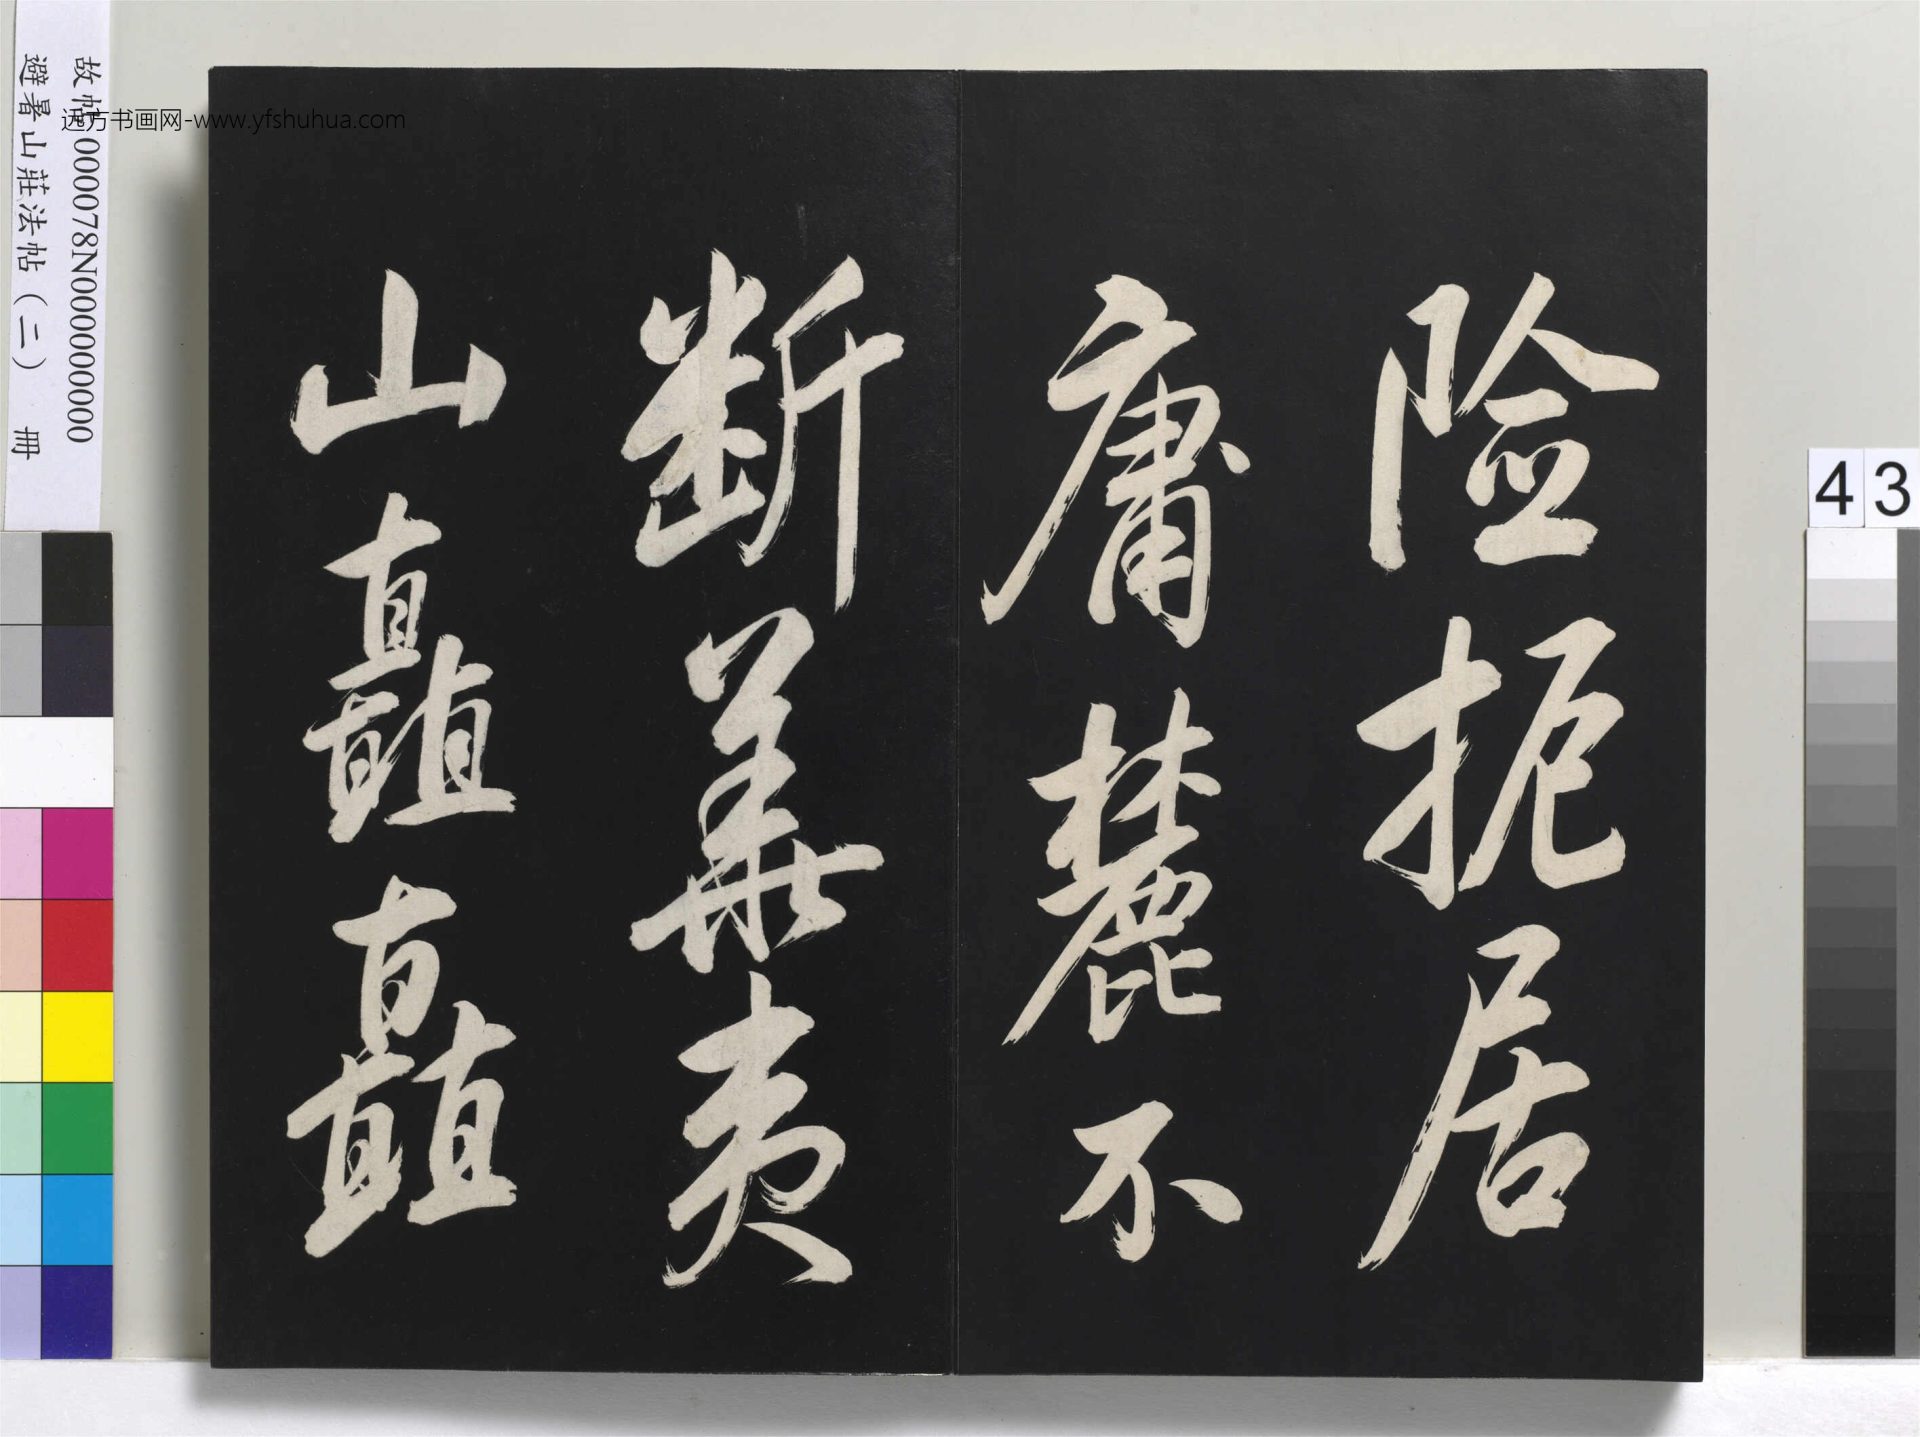 险扼居
庸麓不
断華夷
山矗矗
故帖000078N000000000
避暑山莊法帖（二） 冊
远方书画网-www.yfshuhua.com
43